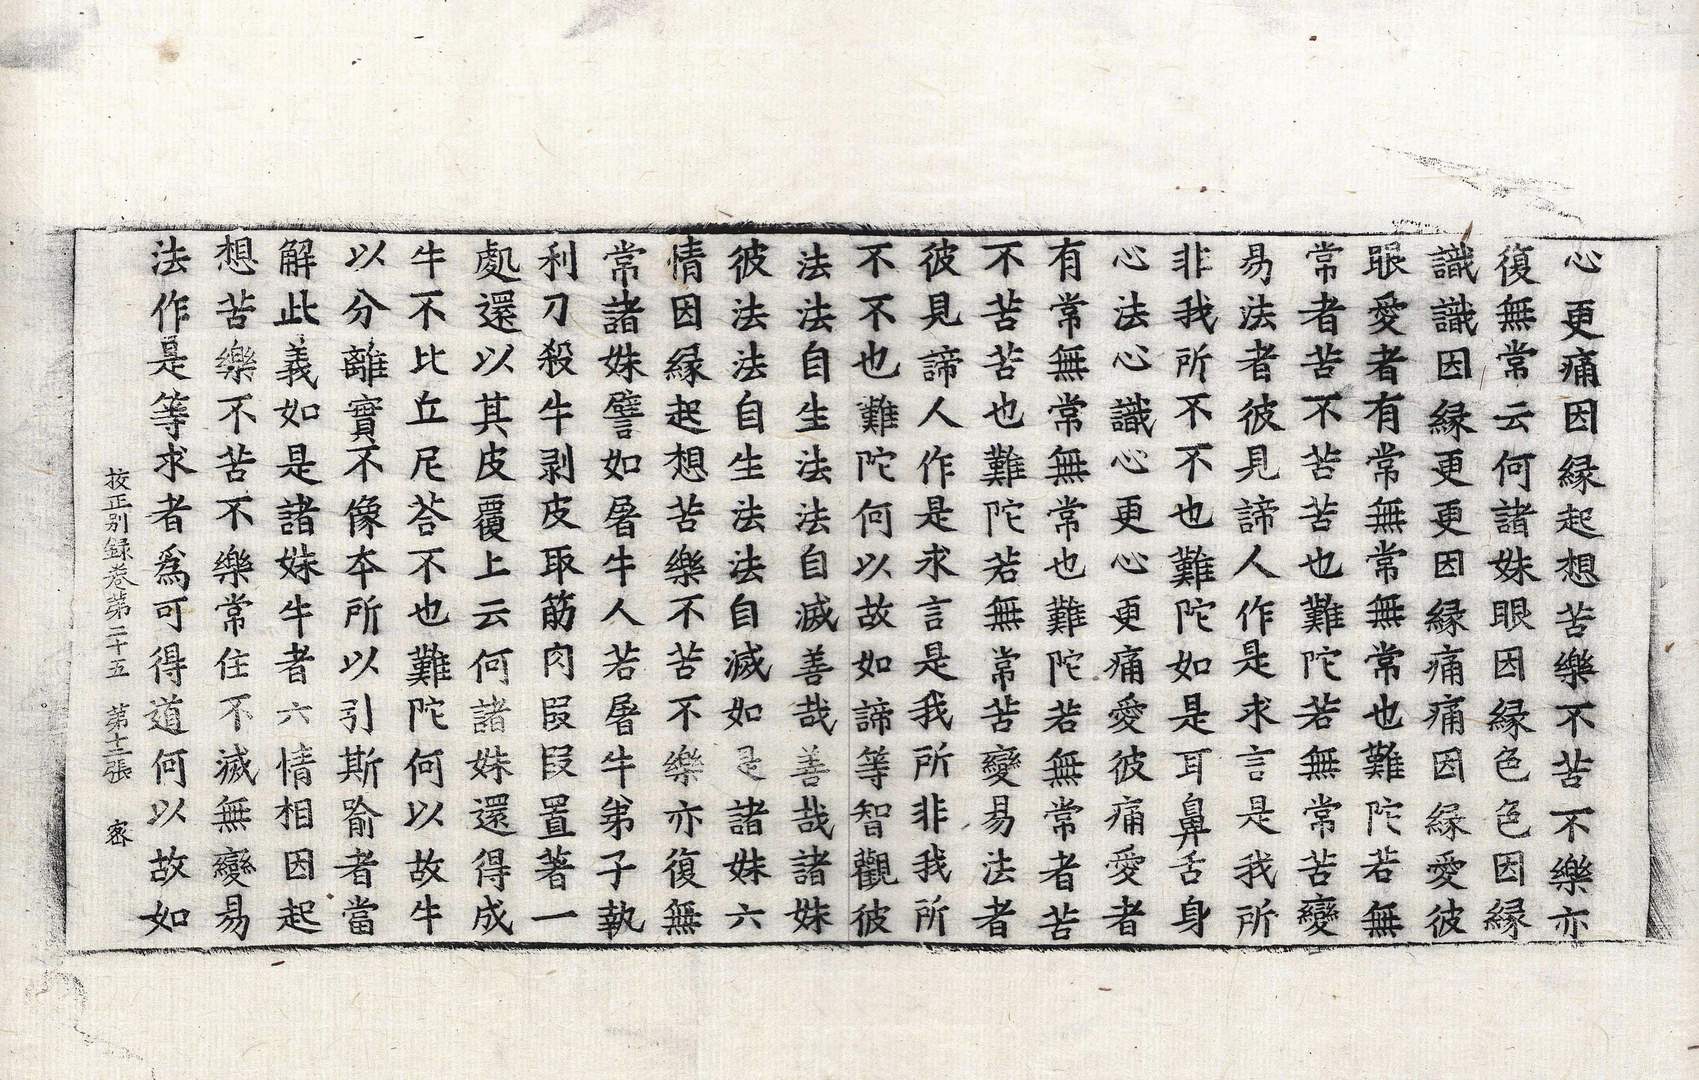 心更痛因縁起想苦樂不苦不樂亦
復無常云何諸姝眼因縁色色因縁
識識因縁更更因縁痛痛因縁愛彼
眼愛者有常無常無常也難陀若無
常者苦不苦苦也難陀若無常苦變
易法者彼見諦人作是求言是我所
非我所不不也難陀如是耳鼻舌身
心法心識心更心更痛愛彼痛愛者
有常無常無常也難陀若無常者苦
不苦苦也難陀若無常苦變易法者
彼見諦人作是求言是我所非我所
不不也難陀何以故如諦等智觀彼
法法自生法法自滅善哉善哉諸姝
彼法法自生法法自滅如是諸姝六
情因縁起想苦樂不苦不樂亦復無
常諸姝譬如屠牛人若屠牛弟子執
利刀殺牛剥皮取筋肉段段置著一
處還以其皮覆上云何諸姝還得成
牛不比丘尼荅不也難陀何以故牛
以分離實不像本所以引斯喻者當
解此義如是諸姝牛者六情相因起
想苦樂不苦不樂常住不滅無變易
法作是等求者爲可得道何以故如
挍正别録卷第二十五　第十二張　密